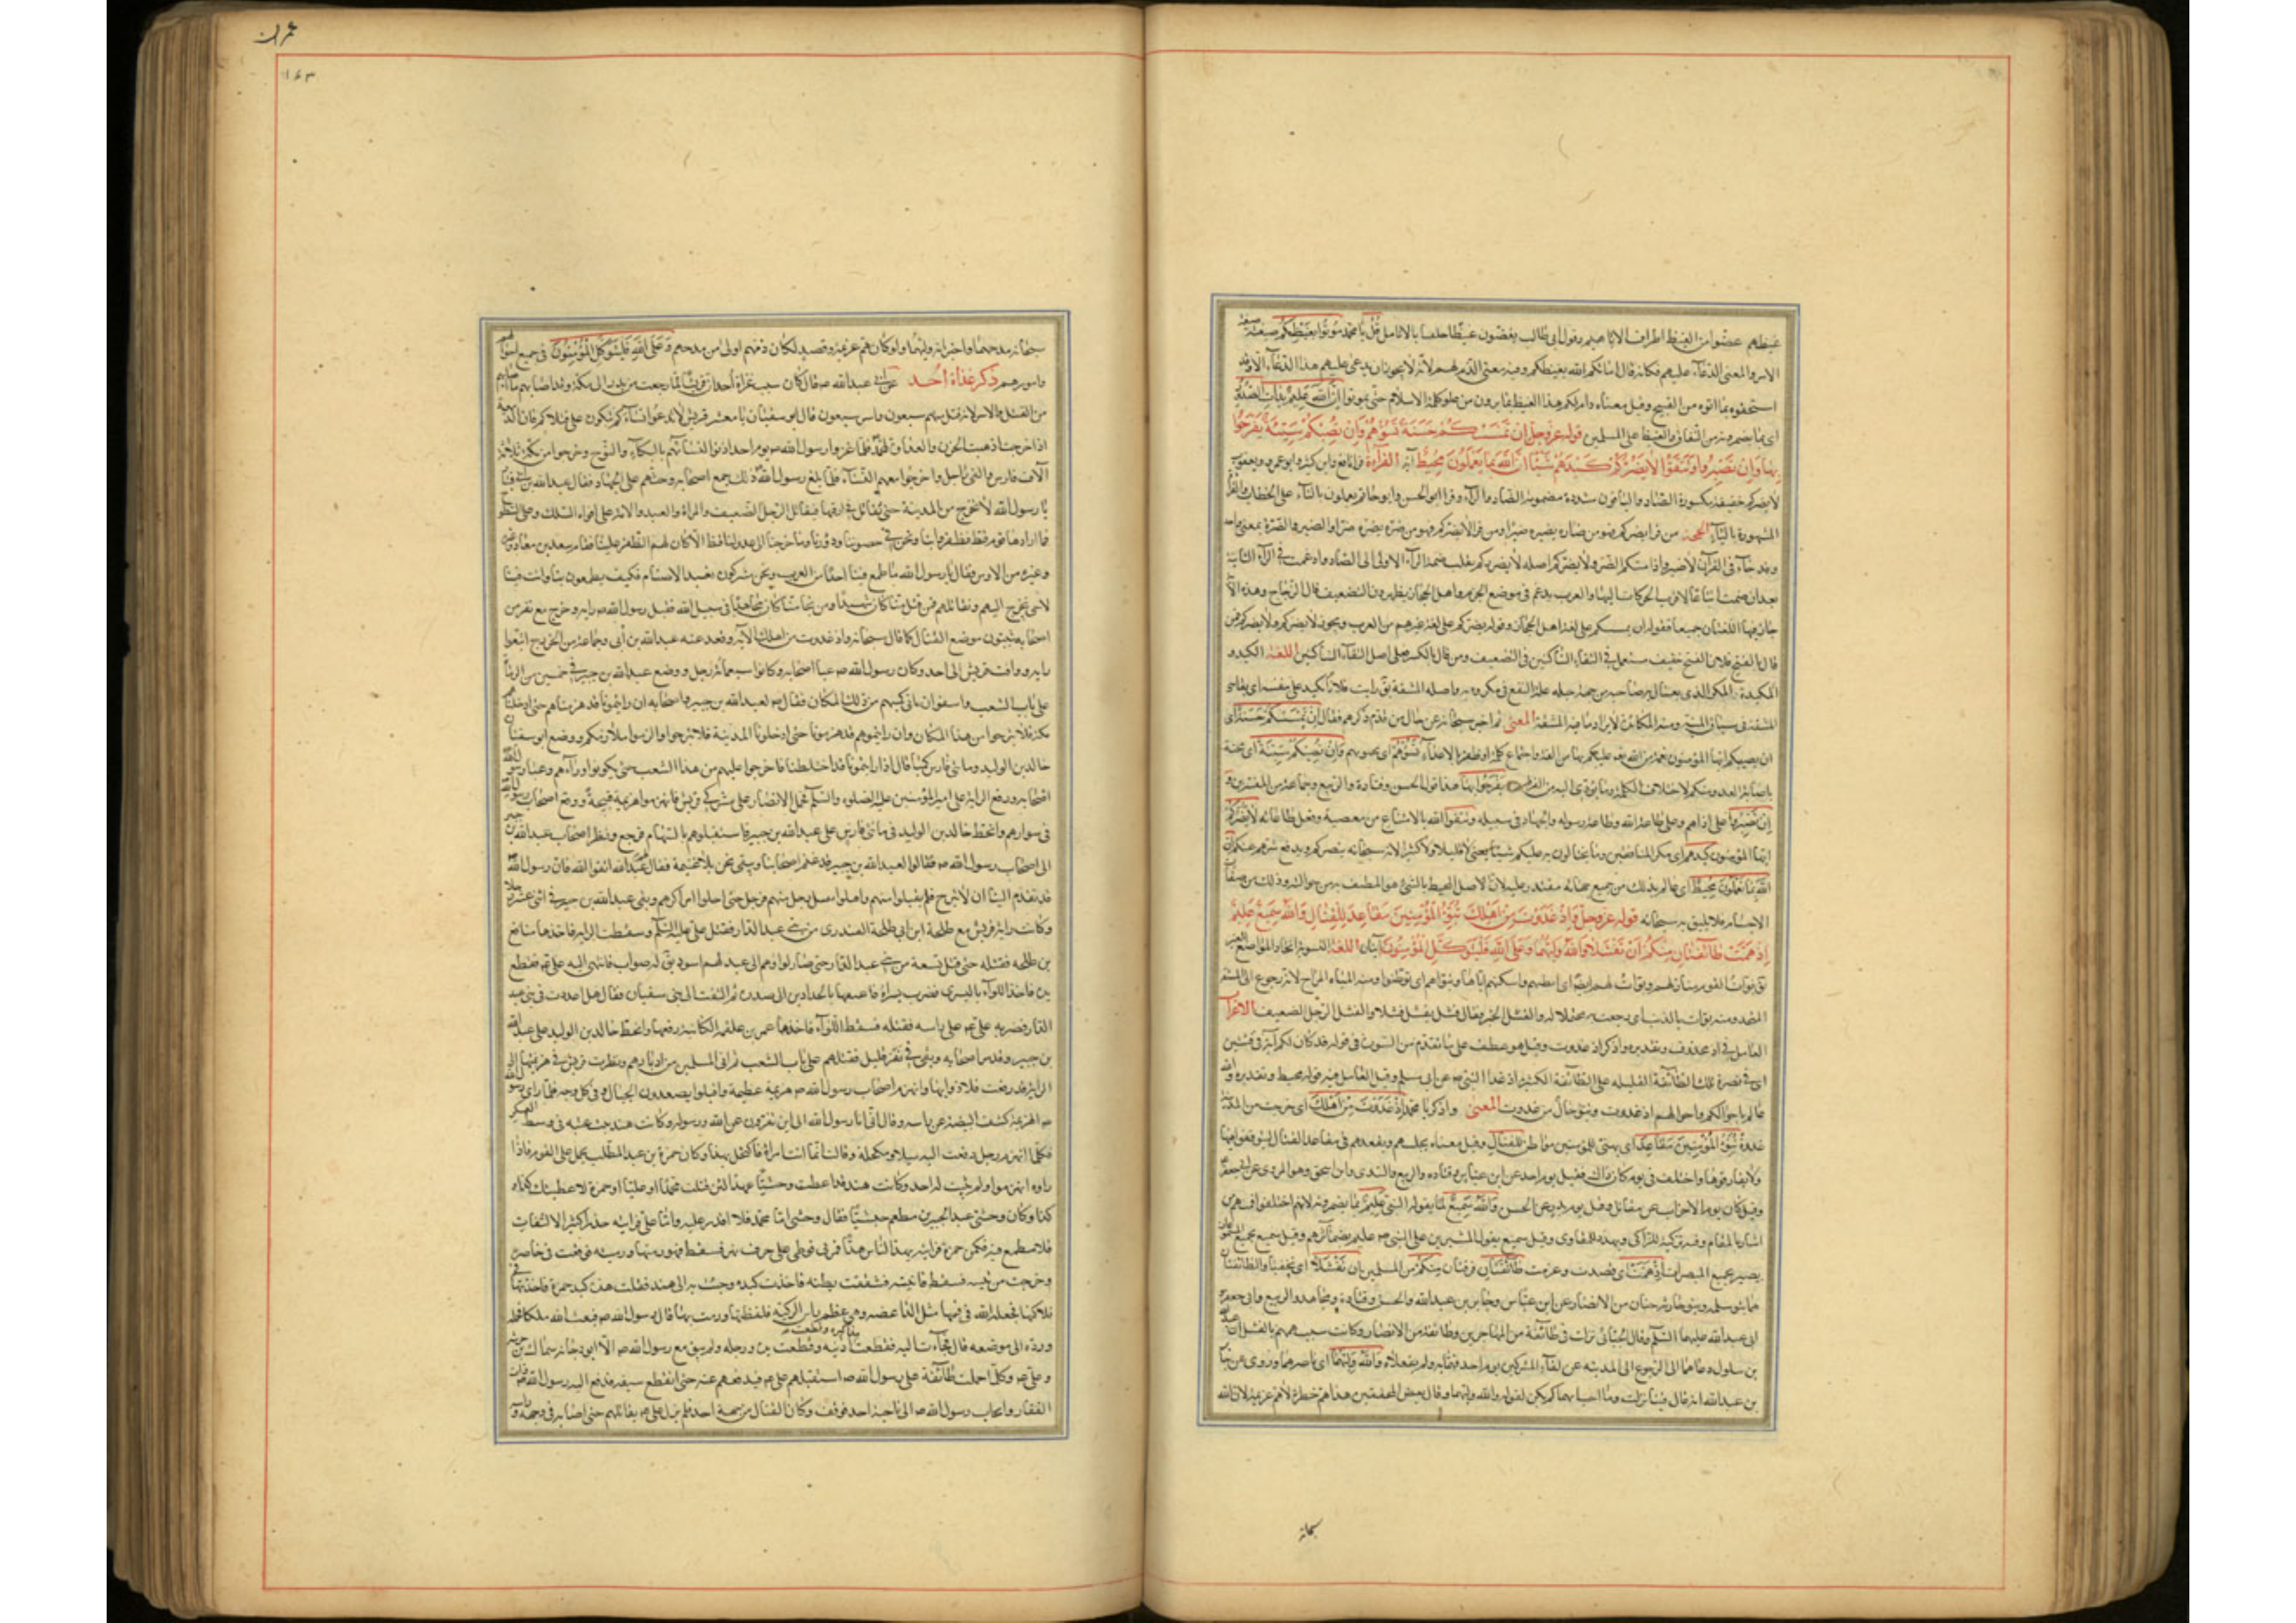 غيظهم عضوا من الغيظ اطراف الاباهيم وقول ابي طالب يعضون غيظا خلفنا بالانامل قُلْ يا محمد مُوتُوا بِغَيْظِكُمْ صيغته صيغة
الامر والمعنى الدعاء عليهم فكانه قال اماتكم الله بغيظكم وفيه معنى الذم لهم لانه لا يجوز ان يدعى عليهم هذا الدعاء الا وقد
استحقوه بما اتوه من القبيح وقيل معناه دام لكم هذا الغيظ لما يرون من علو كلمة الاسلام حتى تموتوا اِنَّ اللهَ عَلِيمٌ بِذاتِ الصُّدُورِ
اى بما يضمرونه من النفاق والغيظ على المسلمين قوله عزوجل اِنْ تَمْسَسْكُمْ حَسَنَةٌ تَسُؤْهُمْ وَاِنْ تُصِبْكُمْ سَيِّئَةٌ يَفْرَحُوا
بِها وَاِنْ تَصْبِرُوا وَتَتَّقُوا لا يَضُرُّكُمْ كَيْدُهُمْ شَيْئًا اِنَّ اللهَ بِما يَعْمَلُونَ مُحِيطٌ آية القراءة قرا نافع وابن كثير وابو عمرو ويعقوب
لا يضركم خفيفة مكسورة الضاد والباقون مشددة مضمومة الضاد والراء وقرا ابو الحسن وابو حاتم تعملون بالتاء على الخطاب والقراءة
المشهورة بالياء الحجة من قرا يضركم فهو من ضاره يضيره ضيرا ومن قرا لا يضركم فهو من ضره يضره ضرا والضير والضر بمعنى واحد
وقد جاء فى القرآن لا ضير واذا مسكم الضر ولا يضركم اصله لا يضرركم نقلت ضمة الراء الاولى الى الضاد وادغمت فى الراء الثانية
بعد ان ضمت اتباعا لاقرب الحركات اليها والعرب يدغم فى موضع الجزم واهل الحجاز يظهرون التضعيف قال الزجاج وهذه الآية
جاءت فيها اللغتان جميعا فقوله ان تمسسكم على لغة اهل الحجاز وقوله يضركم على لغة غيرهم من العرب ويجوز لا يضركم ولا يضركم فمن
قال بالفتح فلان الفتح خفيف مستعمل فى التقاء الساكنين فى التضعيف ومن قال بالكسر فعلى اصل التقاء الساكنين اللغة الكيد و
المكيدة المكر الذى يغتال به صاحبه من جهة حيلة عليه ليقع فى مكروه به واصله المشقة يق رايت فلانا يكيد بنفسه اى يقاسى
المشقة فى سياق المنية ومنه المكايدة لايراد ما فيه المشقة المعنى ثم اخبر سبحانه عن حال من تقدم ذكرهم فقال اِنْ تَمْسَسْكُمْ حَسَنَةٌ اى
ان يصيبكم ايها المؤمنون نعمة من الله بها عليكم من الفة واجتماع كلمة او ظفر بالاعداء تَسُؤْهُمْ اى تحزنهم وَاِنْ تُصِبْكُمْ سَيِّئَةٌ اى محنة
باصابة العدو منكم لاختلاف الكلمة وما يؤدى اليه من الفرقة يَفْرَحُوا بِها هذا قول الحسن وقتادة والربيع وجماعة من المفسرين و
اِنْ تَصْبِرُوا على اذاهم وعلى طاعة الله وطاعة رسوله والجهاد فى سبيله وَتَتَّقُوا الله بالامتناع من معصيته وفعل طاعاته لا يَضُرُّكُمْ
ايها المؤمنون كيدهم اى مكر المنافقين وما يحتالون به عليكم شيئا يعنى لا قليلا ولا كثيرا لانه سبحانه ينصركم ويدفع شرهم عنكم اِنَّ
اللهَ بِما يَعْمَلُونَ مُحِيطٌ اى عالم بذلك من جميع جهاته مقتدر عليه لان الاصل المحيط بالشئ هو المطيف به من حواليه وذلك من صفات
الاجسام فلا يليق به سبحانه قوله عزوجل وَاِذْ غَدَوْتَ مِنْ اَهْلِكَ تُبَوِّئُ الْمُؤْمِنِينَ مَقاعِدَ لِلْقِتالِ وَاللهُ سَمِيعٌ عَلِيمٌ
اِذْ هَمَّتْ طائِفَتانِ مِنْكُمْ اَنْ تَفْشَلا وَاللهُ وَلِيُّهُما وَعَلَى اللهِ فَلْيَتَوَكَّلِ الْمُؤْمِنُونَ آيتان اللغة التبوية اتخاذ المواضع للغير
يق بوات القوم منازلهم وبوات لهم ايضا اى اوطنتهم واسكنتهم اياها وتبؤاهم اى توطنوا ومنه المباءة المراح لانه رجوع الى المستقر
المتخذ ومنه بؤت بالذنب اى رجعت به محتملا له والفشل الجبن يقال فشل يفشل فشلا والفشل الرجل الضعيف الاعراب
العامل فى اذ محذوف وتقديره واذكر اذ غدوت وقيل هو عطف على ما تقدم من السورة فى قوله قد كان لكم آية فى فئتين
اى فى نصرة تلك الطائفة القليلة على الطائفة الكثيرة اذ غدا النبى ص عن ابى مسلم وقيل العامل فيه قوله محيط وتقديره والله
عالم باحوالكم واحوالهم اذ غدوت وتبوئ حال من غدوت المعنى واذكر يا محمد اِذْ غَدَوْتَ مِنْ اَهْلِكَ اى خرجت من المدينة
غدوة تُبَوِّئُ الْمُؤْمِنِينَ مَقاعِدَ اى تهيئ للمؤمنين مواطن لِلْقِتالِ وقيل معناه تجلسهم وتقعدهم فى مقاعد القتال ليقفوا فيها
ولا يفارقوها واختلف فى يوم كان ذلك فقيل يوم احد عن ابن عباس وقتادة والربيع والسدى وابن اسحق وهو المروى عن ابى جعفر
وقيل كان يوم الاحزاب عن مقاتل وقيل يوم بدر عن الحسن وَاللهُ سَمِيعٌ لما يقوله النبى عَلِيمٌ بما يضمرونه لانهم اختلفوا فمنهم من
اشار بالمقام ومنهم تزكية للزاكى وتهديد للغاوى وقيل سميع بقول المشيرين على النبى ص عليم بضمائرهم وقيل سميع بجميع المسموعات
بصير بجميع المبصرات اِذْ هَمَّتْ اى قصدت وعزمت طائِفَتانِ فرقتان مِنْكُمْ من المسلمين ان تَفْشَلا اى تجبنا والطائفتان
هما بنو سلمة وبنو حارثة حيان من الانصار عن ابن عباس وجابر بن عبدالله والحسن وقتادة ومجاهد والربيع وابى جعفر
ابى عبدالله عليهما السلم وقال الجبائى نزلت فى طائفة من المهاجرين وطائفة من الانصار وكانت سبب همهم بالفشل ان عبدالله
بن سلول دعاهما الى الرجوع الى المدينة عن لقاء المشركين يوم احد فهما به ولم يفعلاه وَاللهُ وَلِيُّهُما اى ناصرهما وروى عن جابر
بن عبدالله انه قال فينا نزلت وما احب انها لم تكن لقوله والله وليهما وقال بعض المحققين هذا هم خطرة لا هم عزيمة لان الله
سبحانه
عمران
١٦٣
سبحانه مدحهما واخبر انه وليهما ولو كان هم عزيمة وقصد لكان ذمهم اولى من مدحهم وَعَلَى اللهِ فَلْيَتَوَكَّلِ الْمُؤْمِنُونَ فى جميع احوالهم
وامورهم ذكر غذاة اُحد عن ابى عبدالله ص قال كان سبب غزاة احد ان قريشا لما رجعت من بدر الى مكة وقد اصابهم ما اصابهم
من القتل والاسر لانه قتل منهم سبعون واسر سبعون قال ابو سفيان يا معشر قريش لا تدعوا نساءكم تبكون على قتلاكم فان الدمعة
اذا خرجت اذهبت الحزن والعداوة لمحمد فلما غزوا رسول الله ص يوم احد اذنوا لنسائهم بالبكاء والنوح وخرجوا من مكة فى ثلاثة
آلاف فارس والفى راجل واخرجوا معهم النساء فلما بلغ رسول الله ذلك جمع اصحابه وحثهم على الجهاد فقال عبدالله بن ابى
يا رسول الله لا تخرج من المدينة حتى نقاتل فى ازقتها فيقاتل الرجل الضعيف والمراة والعبد والامة على افواه السكك وعلى السطوح
فما ارادها قوم قط فظفروا بنا ونحن فى حصوننا ودورنا وما خرجنا الى عدو لنا قط الا كان لهم الظفر علينا فقام سعد بن معاذ
وغيره من الاوس فقال يا رسول الله ما طمع فينا احد من العرب ونحن مشركون نعبد الاصنام فكيف يطمعون بنا وانت فينا
لا حتى نخرج اليهم ونقاتلهم فمن قتل منا كان شهيدا ومن نجا منا كان مجاهدا فى سبيل الله فقبل رسول الله ص رايه وخرج مع نفر من
اصحابه يتبؤن موضع القتال كما قال سبحانه واذ غدوت من اهلك الآية وقعد عنه عبدالله بن أبى وجماعة من الخزرج اتبعوا
رايه ووافت قريش الى احد وكان رسول الله ص عبا اصحابه وكانوا سبعمائة رجل ووضع عبدالله بن جبير فى خمسين من الرماة
على باب الشعب واشفق ان ياتى كمينهم من ذلك المكان فقال ص لعبدالله بن جبير واصحابه ان رايتمونا قد هزمناهم حتى ادخلناهم
مكة فلا تبرحوا من هذا المكان وان رايتموهم قد هزمونا حتى ادخلونا المدينة فلا تبرحوا والزموا مراكزكم ووضع ابو سفيان
خالد بن الوليد فى مائتى فارس كمينا قال اذا رايتمونا قد اختلطنا فاخرجوا عليهم من هذا الشعب حتى تكونوا وراءهم وعبا رسول الله
اصحابه ودفع الراية الى امير المؤمنين عليه الصلوه والسلم فحمل الانصار على مشركى قريش فانهزموا هزيمة قبيحة ووقع اصحاب رسول الله
فى سوادهم وانحط خالد بن الوليد فى مائتى فارس على عبدالله بن جبير فاستقبلوهم بالسهام فرجع ونظر اصحاب عبدالله بن جبير
الى اصحاب رسول الله ص فقالوا لعبدالله بن جبير قد غنم اصحابنا ونبقى نحن بلا غنيمة فقال عبدالله اتقوا الله فان رسول الله
قد تقدم الينا ان لا نبرح فلم يقبلوا منهم واقبلوا ينسل رجل فرجل حتى اخلوا مراكزهم وبقى عبدالله بن جبير فى اثنى عشر رجلا
وكانت راية قريش مع طلحة ابن ابى طلحة العبدرى من بنى عبد الدار فقتله على عليه السلم وسقطت الراية فاخذها مسافع
بن طلحه فقتله حتى قتل تسعة من بنى عبد الدار حتى صار لواؤهم الى عبد لهم اسود يق له صواب فانتهى اليه على ع فقطع
يده فاخذ اللواء باليسرى فضرب يسراه فاعتنقها بالجذماوين الى صدره ثم التفت الى ابى سفيان فقال هل اعذرت فى بنى عبد
الدار فضربه على ع على راسه فقتله فسقط اللواء فاخذها عمرة بنت علقمه الكنانية فرفعتها وانحط خالد بن الوليد على عبدالله
بن جبير وفر اصحابه وبقى فى نفر قليل فقتلهم على باب الشعب ثم اتى المسلمين من ادبارهم ونظرت قريش فى هزيمتها الى
الراية قد رفعت فلاذوا بها وانهزم اصحاب رسول الله ص هزيمة عظيمة واقبلوا يصعدون الجبال وفى كل وجه فلما راى رسول الله
ص الهزيمة كشف البيضة عن راسه وقال انى انا رسول الله الى اين تفرون عن الله ورسوله وكانت هند بنت عتبه فى وسط العسكر
فكلما انهزم رجل دفعت اليه ميلا ومكحلة وقالت انما انت امراة فاكتحل بهذا وكان حمزة بن عبد المطلب يحمل على القوم فاذا
راوه انهزموا ولم يثبت له احد وكانت هند قد اعطت وحشيا عهدا لئن قتلت محمدا او عليا او حمزة لاعطينك كذا
كذا وكان وحشى عبدا لجبير بن مطعم حبشيا فقال وحشى اما محمد فلا اقدر عليه واما على فرايته حذرا كثير الالتفات
فلا مطمع فيه فكمن لحمزة فرايته يهد الناس هدا فمر بى فوطئ على جرف نهر فسقط فهززت حربتى ورميته فوقعت فى خاصرته
وخرجت من ثنته فسقط فاتيته فشققت بطنه فاخذت كبده وجئت به الى هند فقلت هذه كبد حمزة فاخذتها فى
فلاكتها فجعله الله فى فيها مثل الداغصة وهى عظم راس الركبة فلفظتها ورمت بها قال رسول الله ص فبعث الله ملكا فحمله
ورده الى موضعه قال فجاءت اليه فقطعت اذنيه وقطعت يده ورجله ولم يبق مع رسول الله ص الا ابو دجانة سماك بن خرشة
وعلى ع وكلما حملت طائفة على رسول الله ص استقبلهم على ع فيدفعهم عنه حتى انقطع سيفه فدفع اليه رسول الله ص سيفه ذا
الفقار وانحاز رسول الله ص الى ناحية احد فوقف وكان القتال من جهة احد فلم يزل على ع يقاتلهم حتى اصابه فى وجهه و